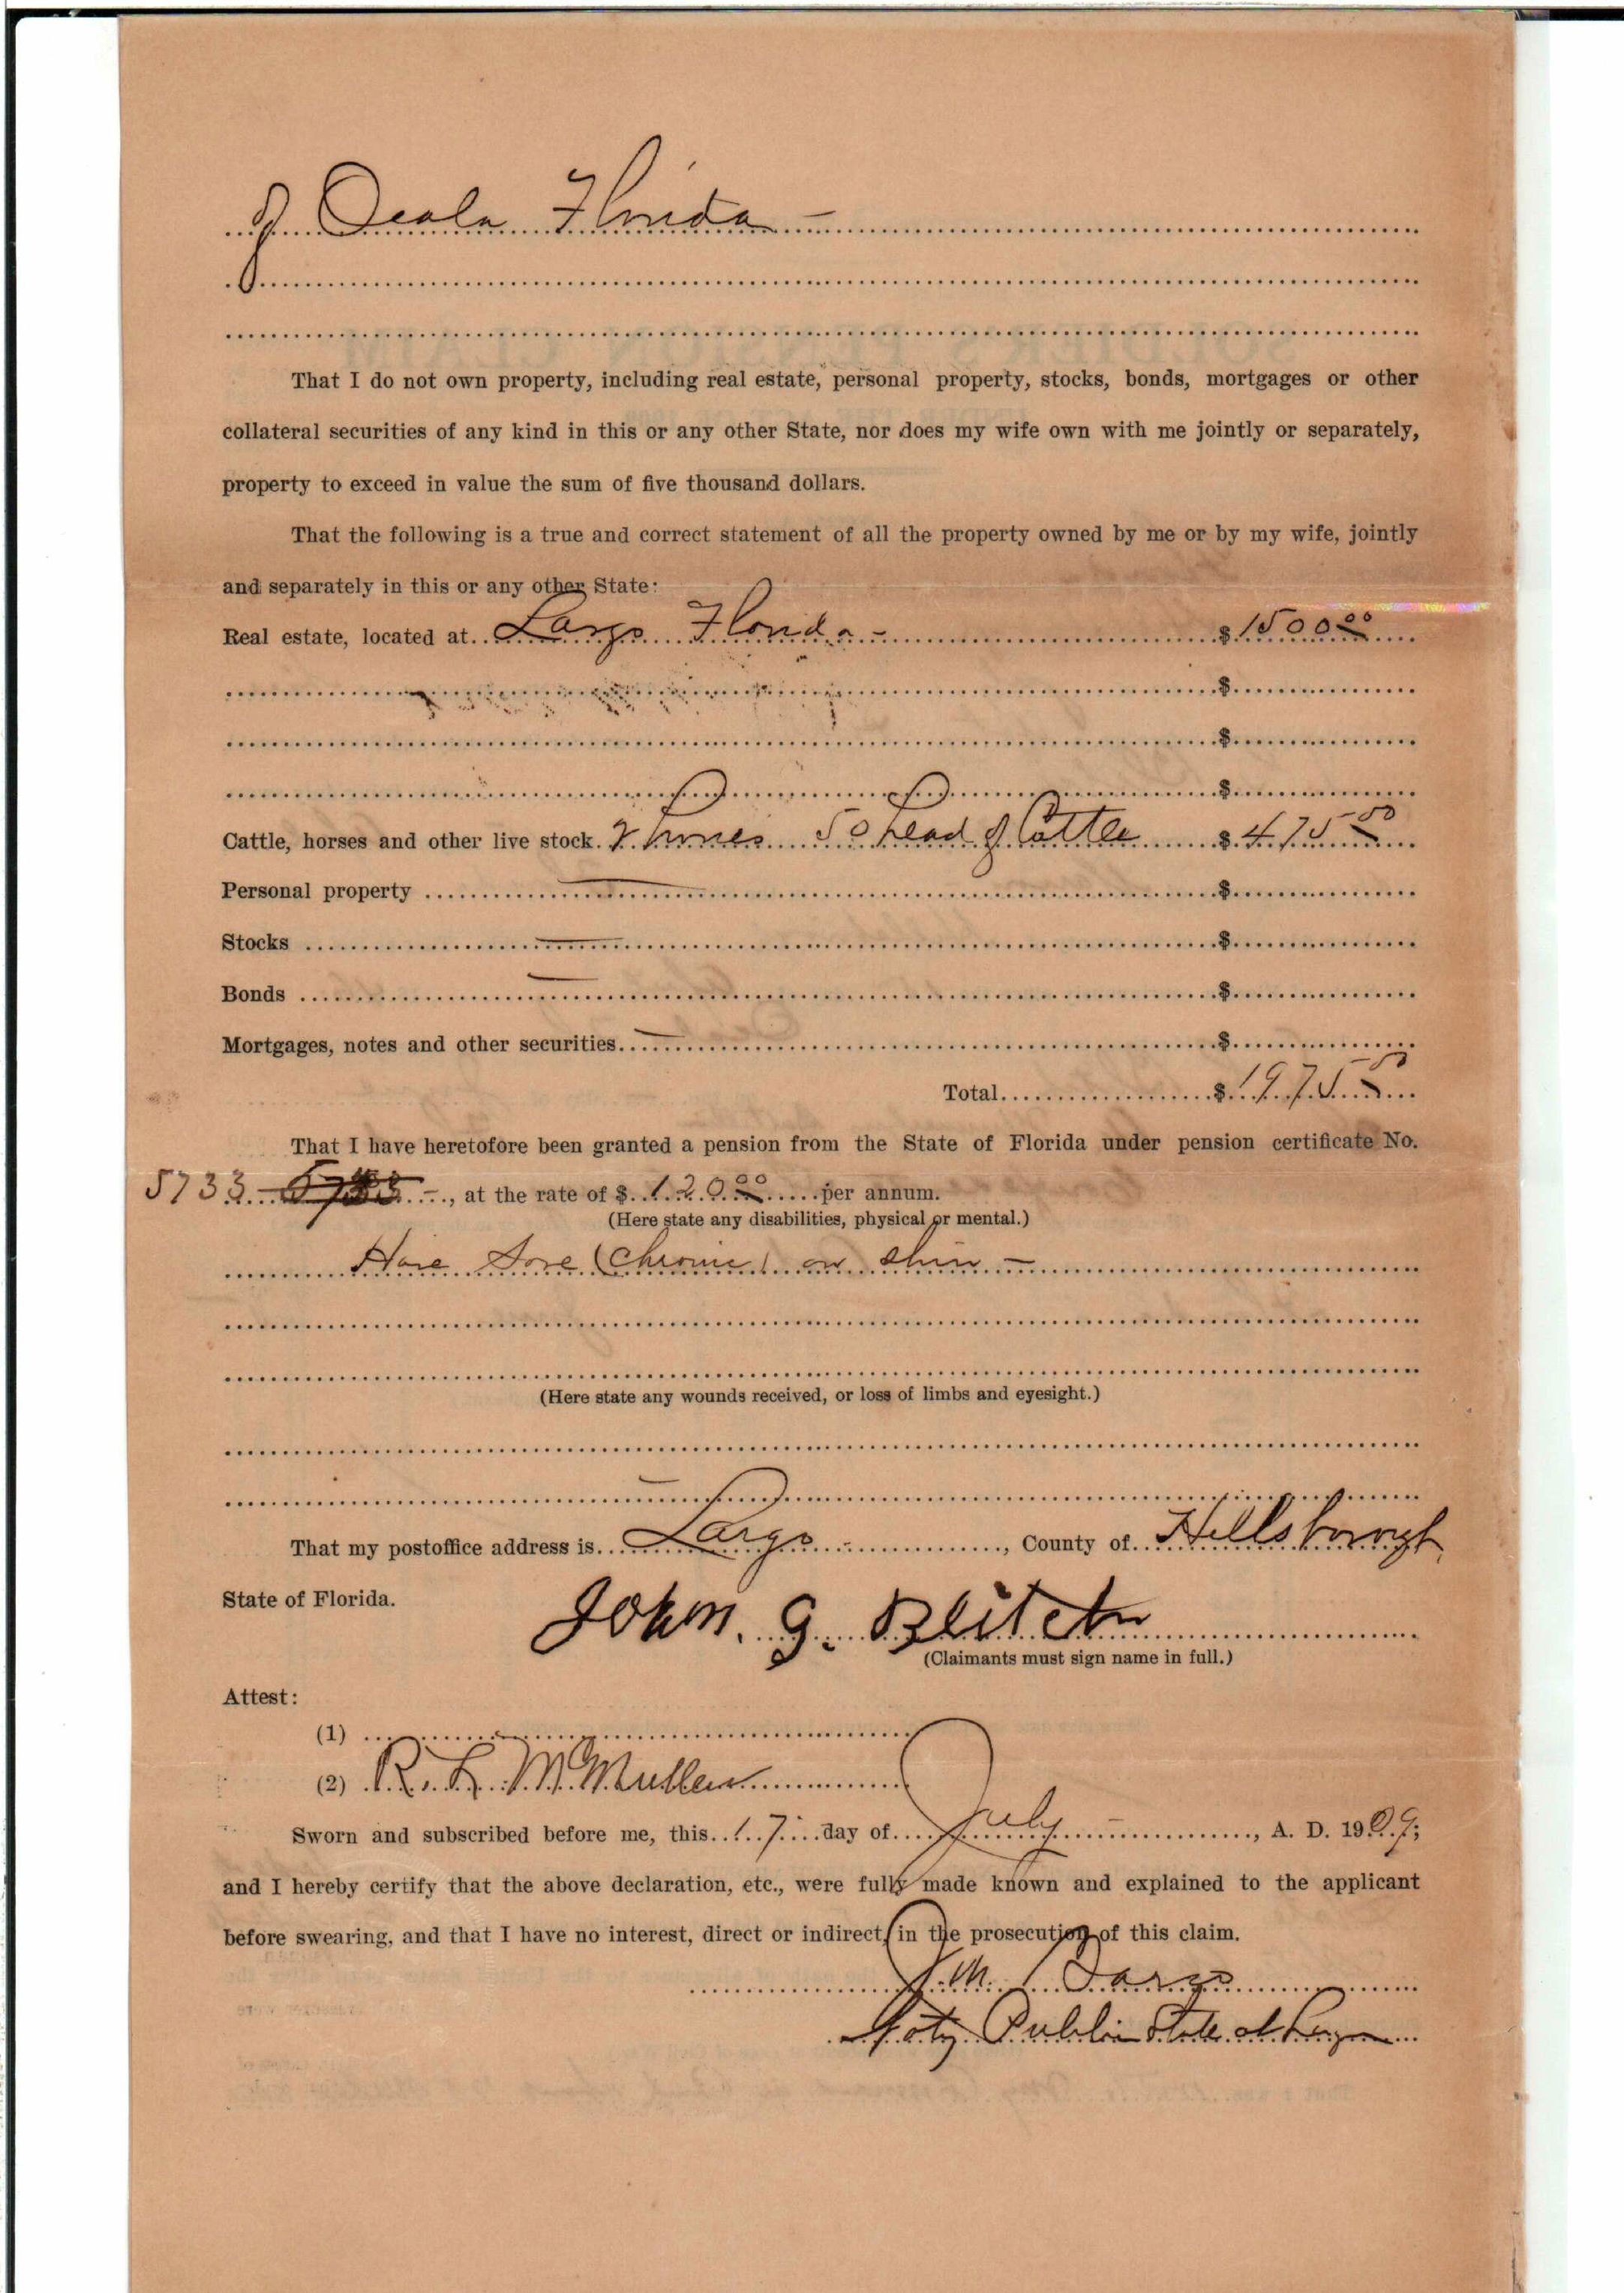 of Ocala Florida –
That I do not own property, including real estate, personal property, stocks, bonds, mortgages or other
collateral securities of any kind in this or any other State, nor does my wife own with me jointly or separately,
property to exceed in value the sum of five thousand dollars.
That the following is a true and correct statement of all the property owned by me or by my wife, jointly
and separately in this or any other State:
Real estate, located at Largo Florida – $ 1500 00
$
$
$
Cattle, horses and other live stock. 2 horses 50 head of Cattle $ 475 00
Personal property — $
Stocks — $
Bonds — $
Mortgages, notes and other securities — $
Total $ 1975 00
That I have heretofore been granted a pension from the State of Florida under pension certificate No.
5733 –, at the rate of $ 120 00 per annum.
(Here state any disabilities, physical or mental.)
Have Sore (Chronic) on shin –
(Here state any wounds received, or loss of limbs and eyesight.)
That my postoffice address is Largo –, County of Hillsborough
State of Florida.
John. G. Blitch
(Claimants must sign name in full.)
Attest:
(1)
(2) R. L. McMullen
Sworn and subscribed before me, this 17 day of July –, A. D. 1909;
and I hereby certify that the above declaration, etc., were fully made known and explained to the applicant
before swearing, and that I have no interest, direct or indirect, in the prosecution of this claim.
Noty Public State at Large